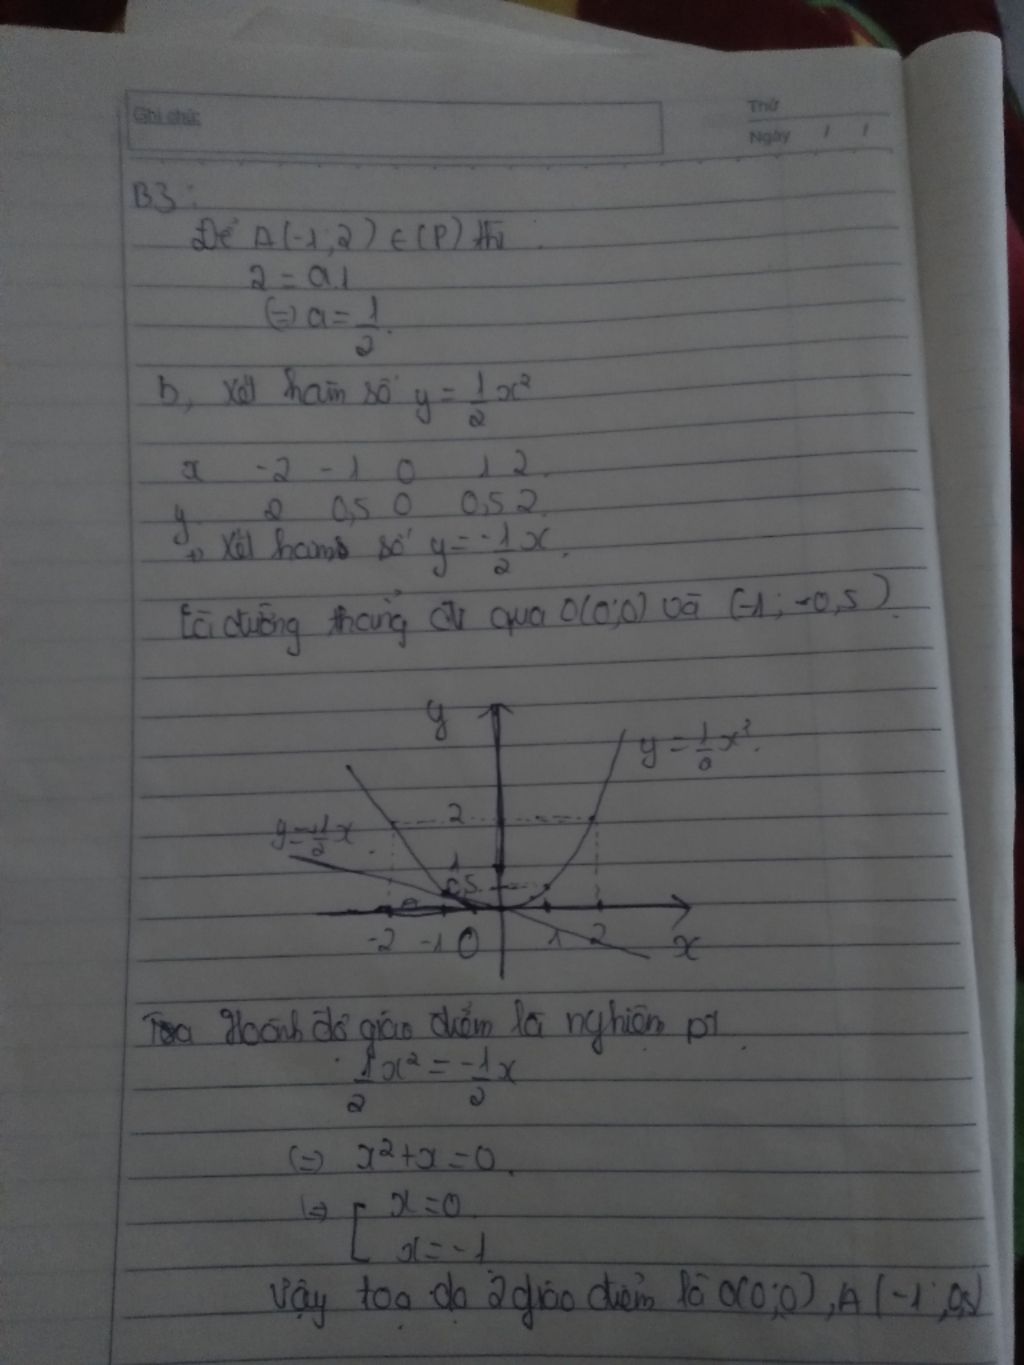 Ghi chú:
Thứ
Ngày / /
B3:
Để A(-1;2) ∈ (P) thì
2 = a.1
(=) a = 1/2.
b, Xét hàm số y = 1/2 x²
x -2 -1 0 1 2
y 2 0,5 0 0,5 2
Xét hàm số y = -1/2 x.
Là đường thẳng đi qua O(0;0) và (-1; -0,5).
y
y = 1/2 x².
2
y = -1/2 x.
1
0,5
-2 -1 O 1 2 x
Hoành độ giao điểm là nghiệm pt
1/2 x² = -1/2 x
(=) x² + x = 0.
(=) [ x = 0
x = -1
Vậy toạ độ 2 giao điểm là O(0;0), A(-1; 0,5)